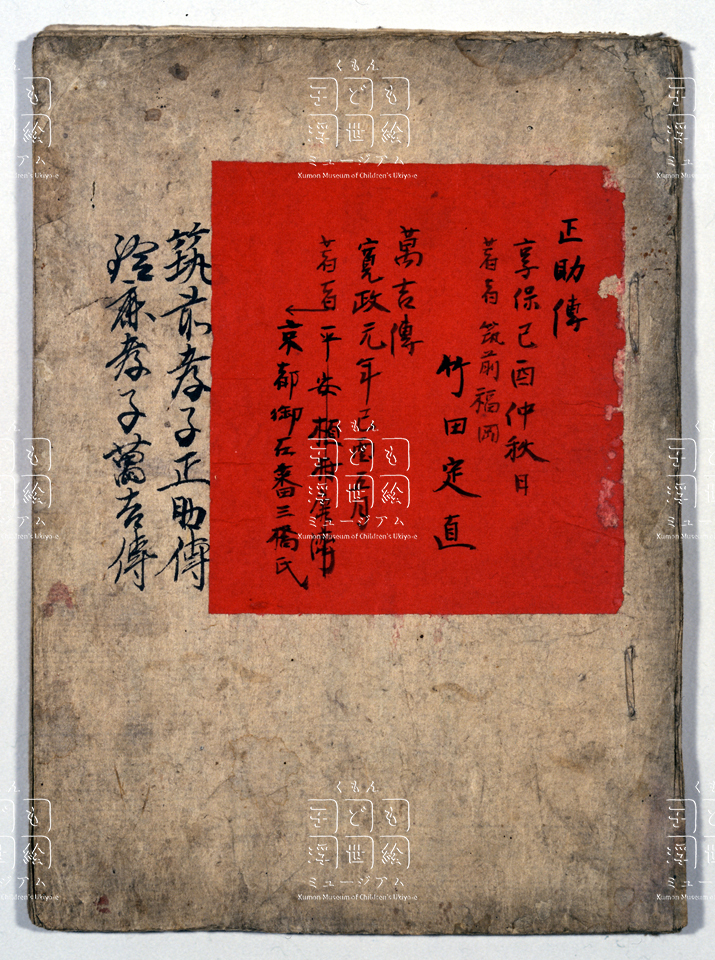 正助傳
享保己酉仲秋日
著者 筑前福岡
竹田定直
萬吉傳
寛政元年己酉正月
著者 平安
京都御石番三橋氏
筑前孝子正助傳
鈴鹿孝子萬吉傳
くもん
子ども
浮世絵
ミュージアム
Kumon Museum of Children's Ukiyo-e